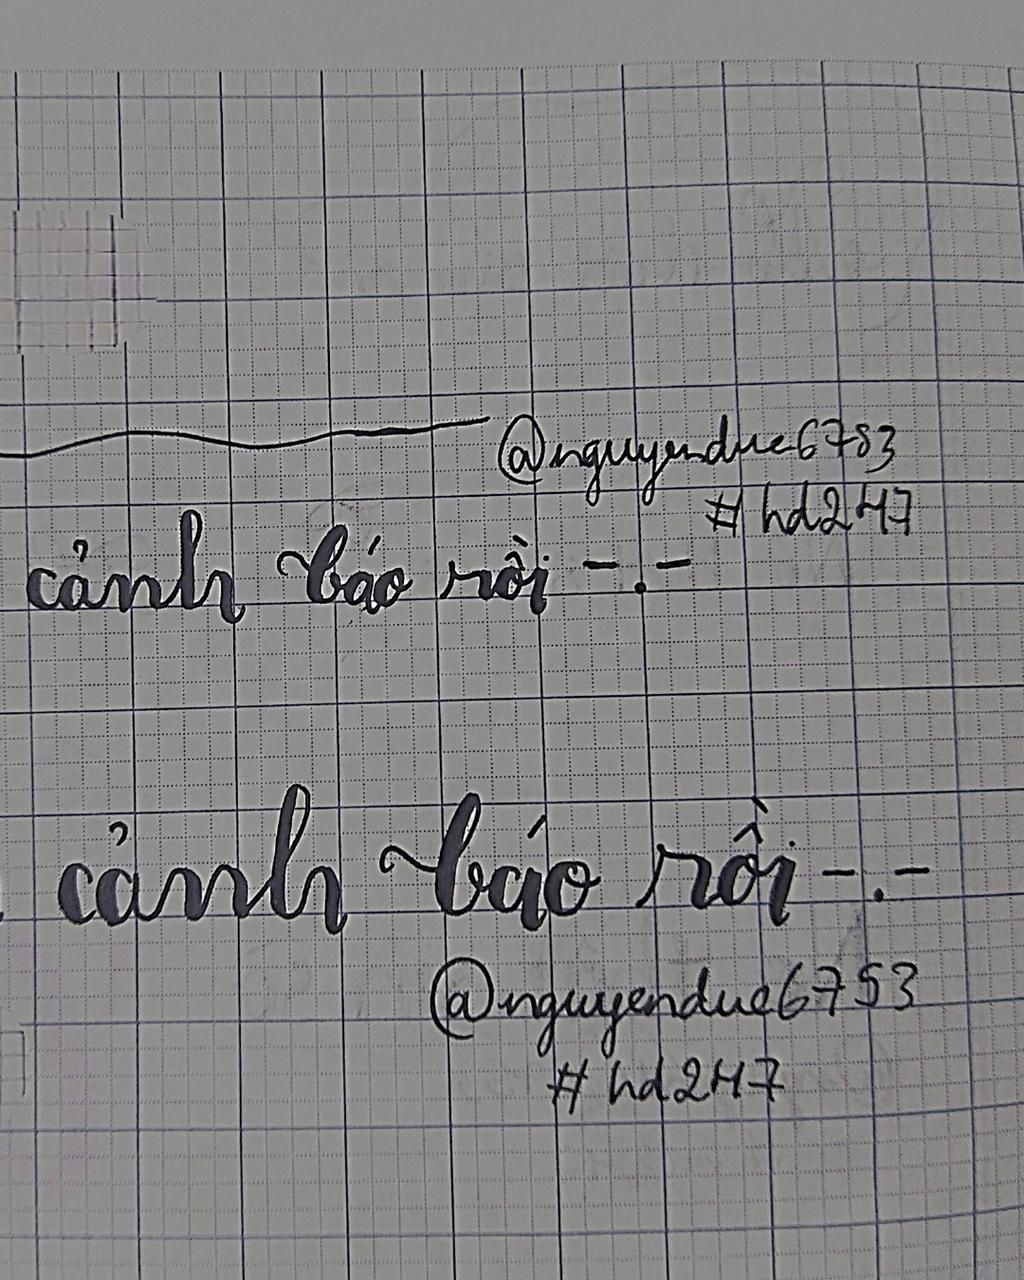 @nguyenduc6753
#hd247
cảnh báo rồi -.-
cảnh báo rồi -.-
@nguyenduc6753
#hd247